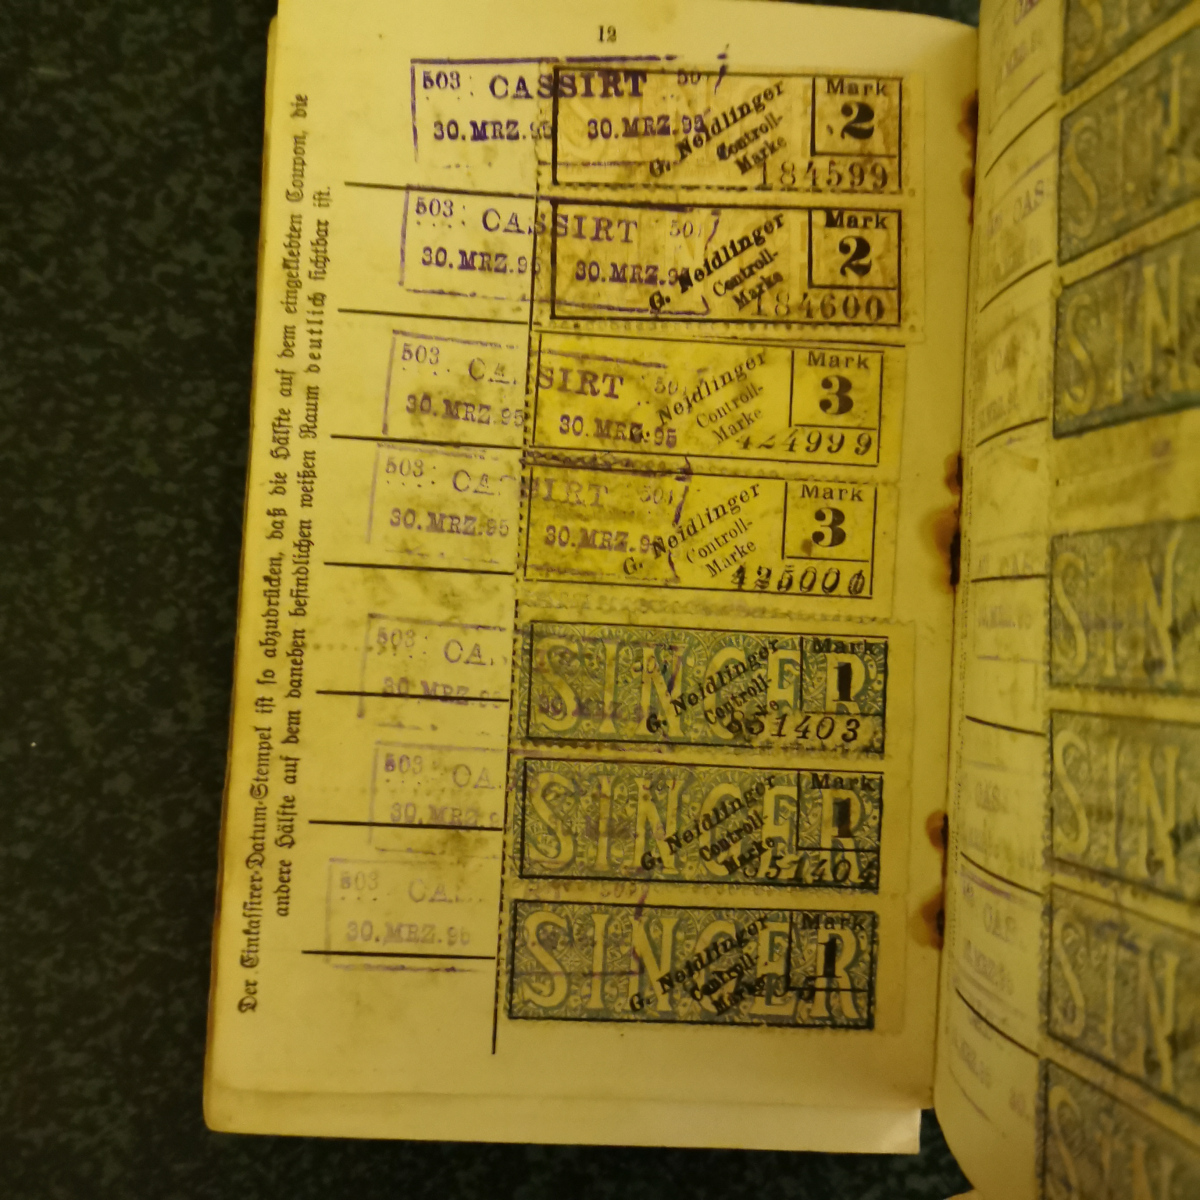 12
Der Einkassirer-Datum-Stempel ist so abzudrücken, daß die Hälfte auf dem eingeklebten Coupon, die
andere Hälfte auf dem daneben befindlichen weißen Raum deutlich sichtbar ist.
503 CASSIRT 50
30.MRZ.95 30.MRZ.95
G. Neidlinger
Controll-
Marke
Mark
2
184599
503 CASSIRT 50
30.MRZ.95 30.MRZ.95
G. Neidlinger
Controll-
Marke
Mark
2
184600
503 CA. SIRT 50
30.MRZ.95 30.MRZ.95
G. Neidlinger
Controll-
Marke
Mark
3
424999
503 CA. SIRT 50
30.MRZ.95 30.MRZ.95
G. Neidlinger
Controll-
Marke
Mark
3
425000
503 CA. 50
30.MRZ.
SINGER
G. Neidlinger
Controll-
Marke
Mark
1
951403
503 CA.
30.MRZ.9
SINGER
G. Neidlinger
Controll-
Marke
Mark
1
951404
503 CA.
30.MRZ.95
SINGER
G. Neidlinger
Controll-
Marke
Mark
1
SIN
SIN
SIN
SIN
SIN
SIN